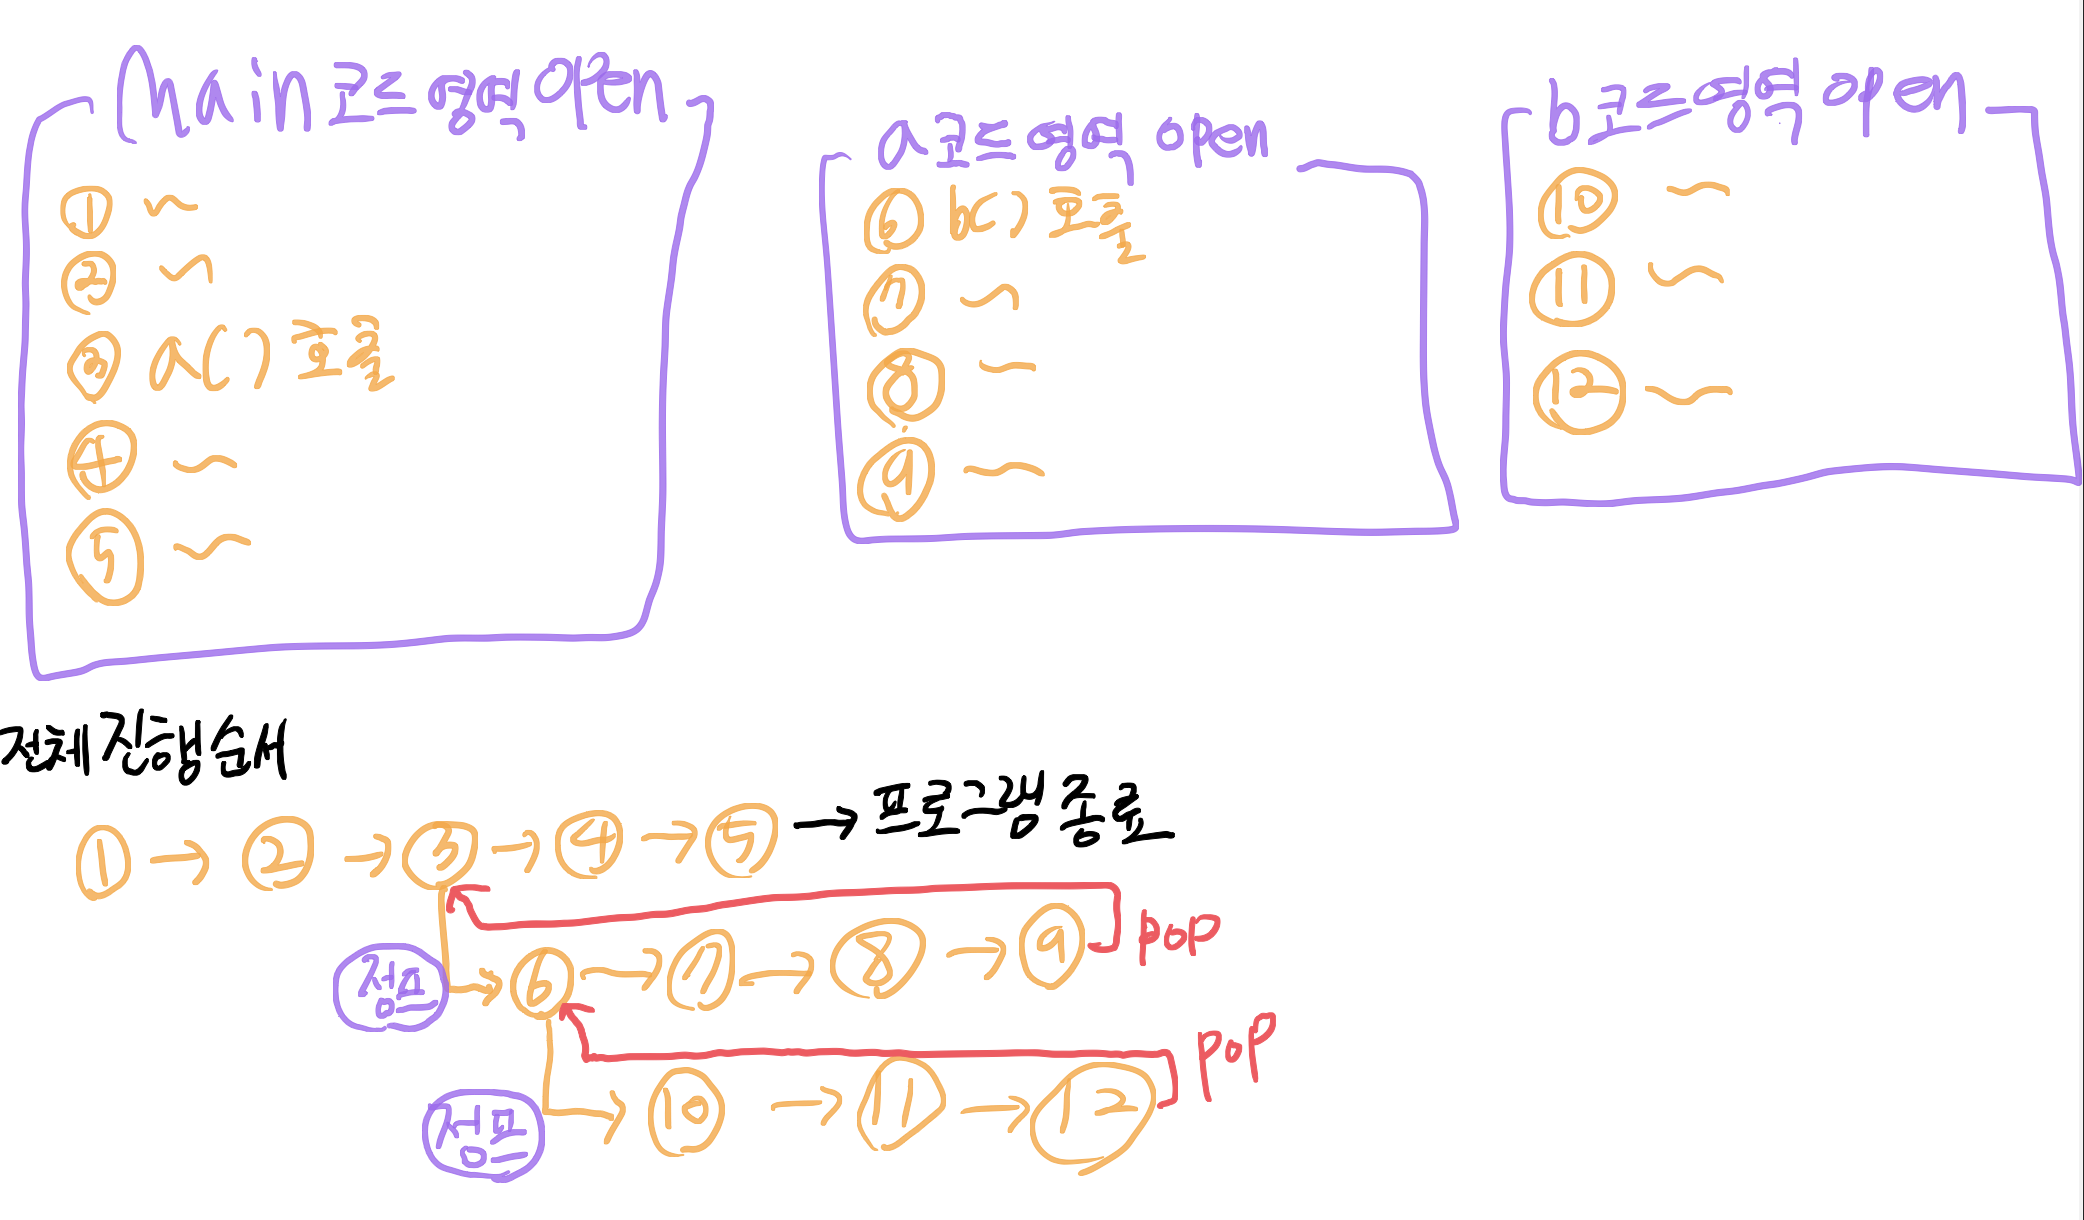 Main 코드 영역 open
① ~
② ~
③ a() 호출
④ ~
⑤ ~
a 코드 영역 open
⑥ b() 호출
⑦ ~
⑧ ~
⑨ ~
b 코드 영역 open
⑩ ~
⑪ ~
⑫ ~
전체 진행 순서
① → ② → ③ → ④ → ⑤ → 프로그램 종료
점프 → ⑥ → ⑦ → ⑧ → ⑨ pop
점프 → ⑩ → ⑪ → ⑫ pop